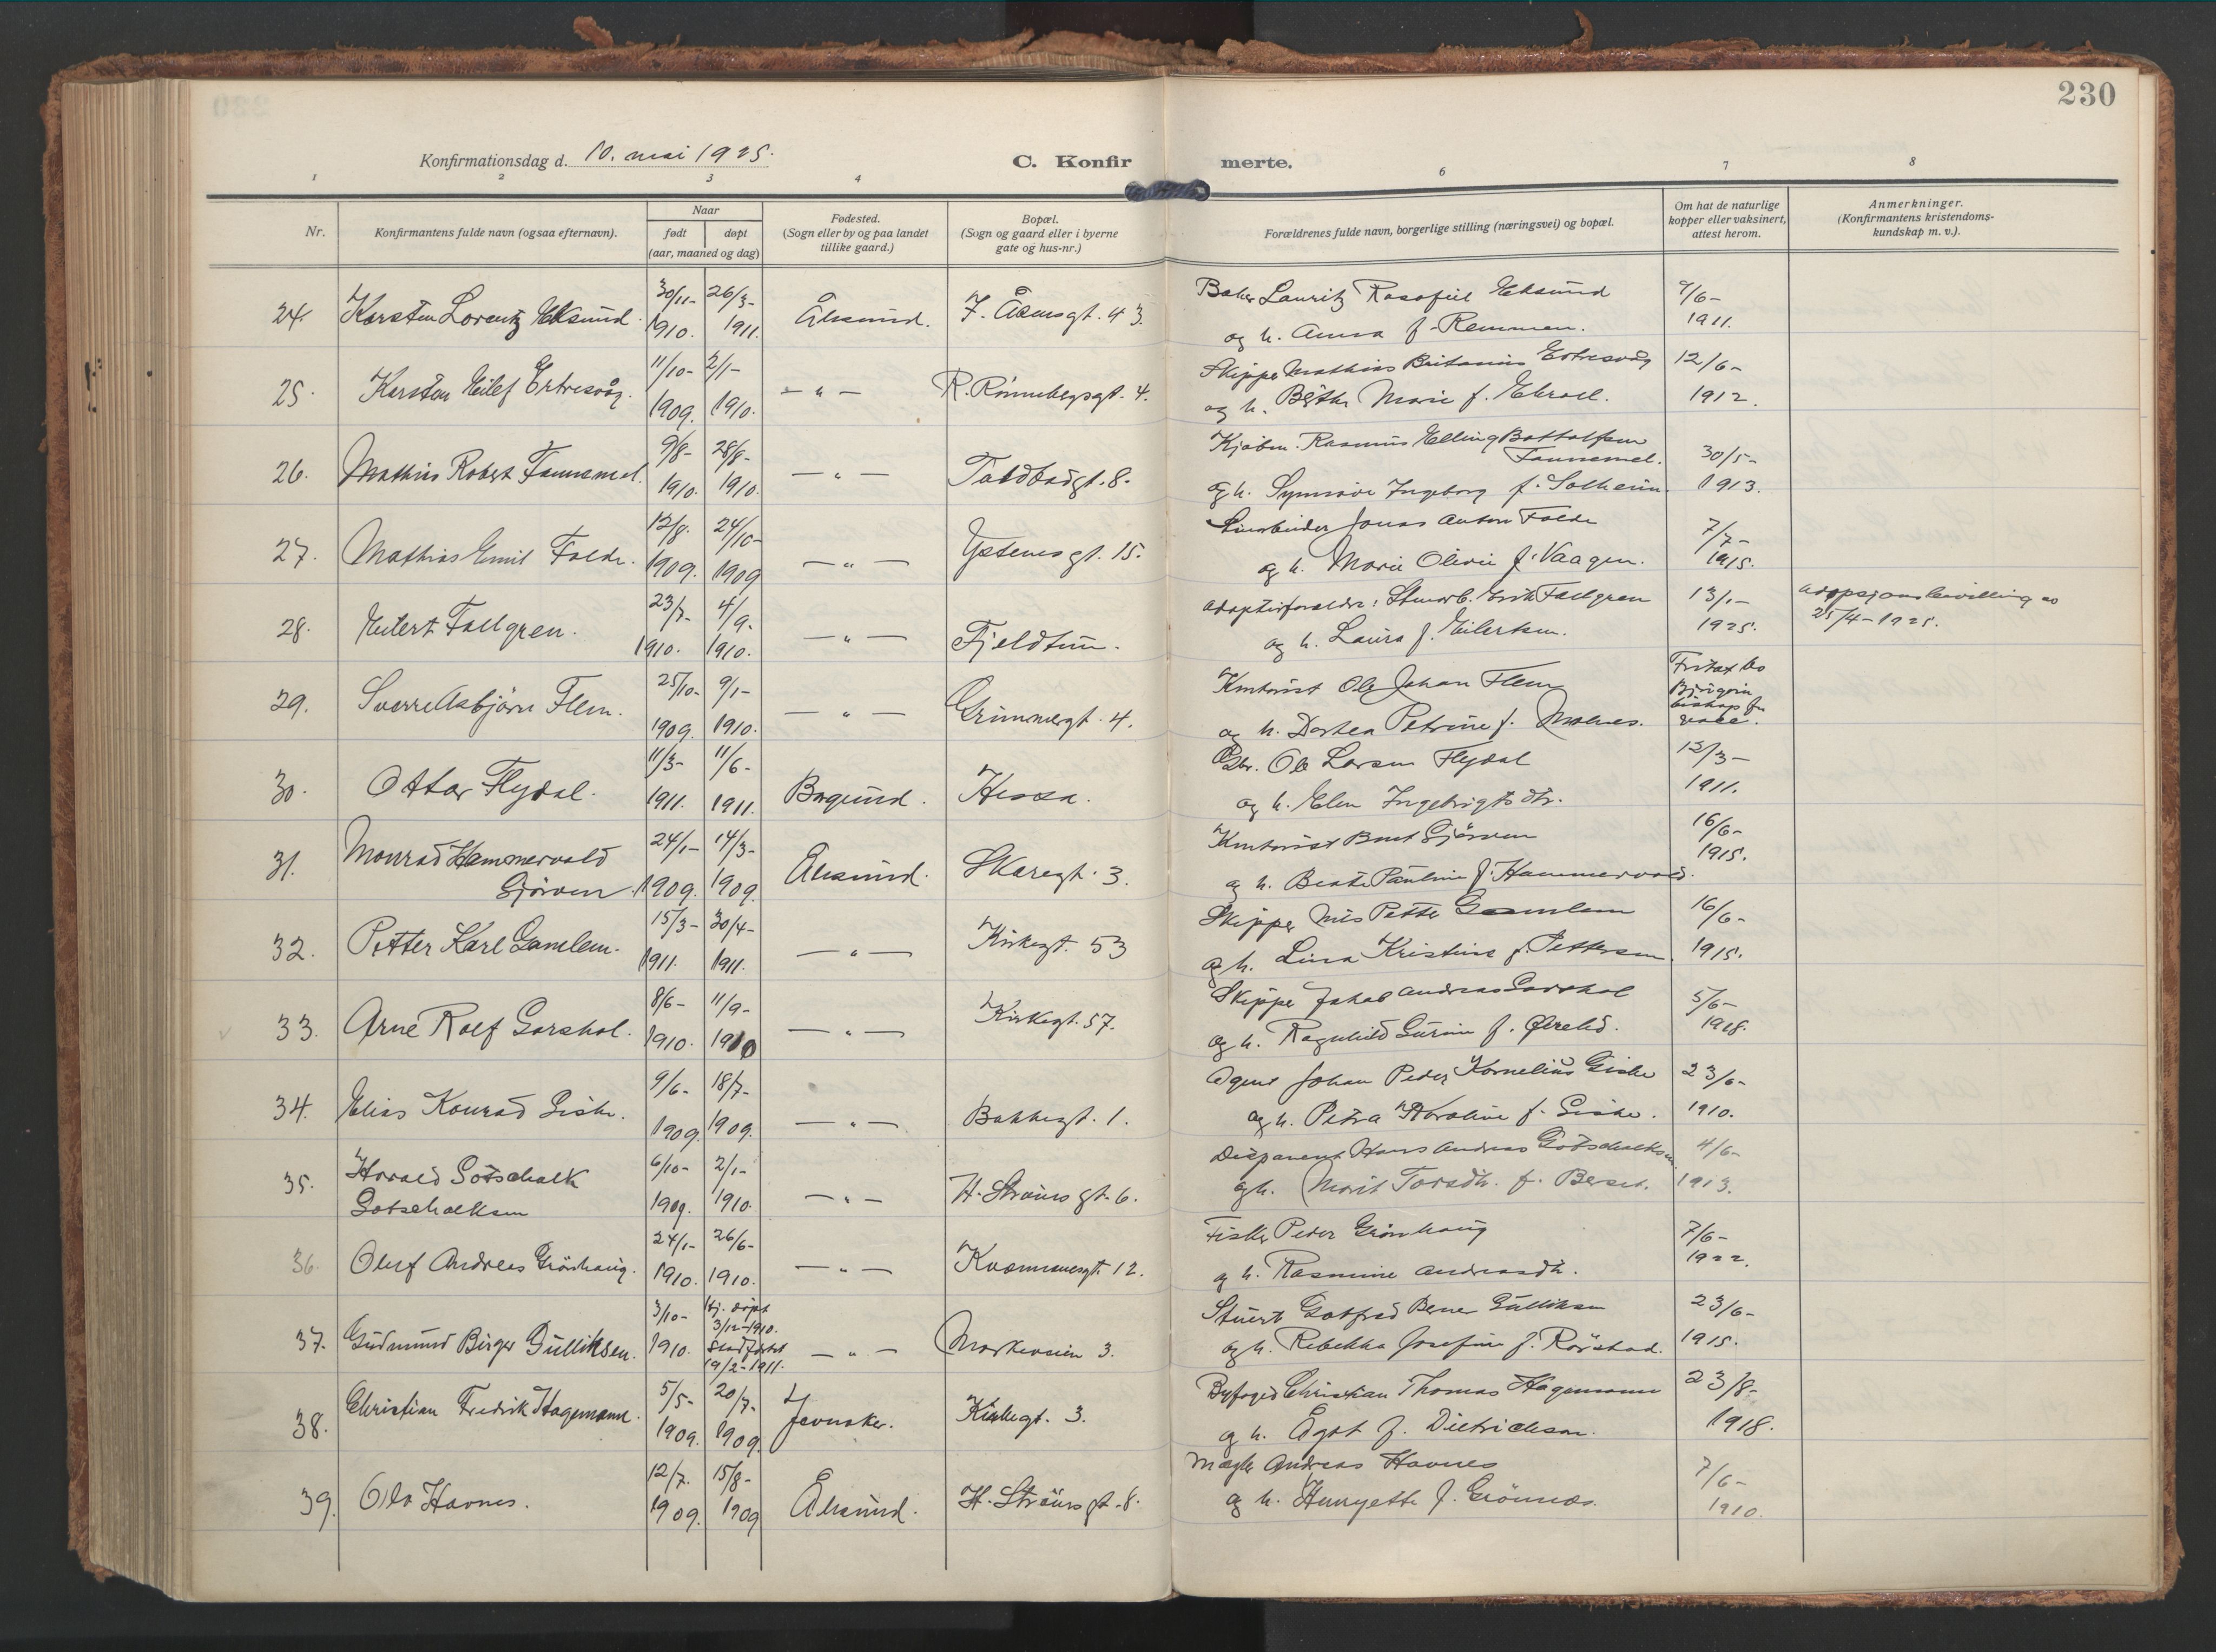 230
Konfirmationsdag d. 10. mai 1925.
C. Konfirmerte.
1 2 3 4 6 7 8
Nr.
Konfirmantens fulde navn (ogsaa efternavn).
Naar
født døpt
(aar, maaned og dag)
Fødested.
(Sogn eller by og paa landet
tillike gaard.)
Bopæl.
(Sogn og gaard eller i byerne
gate og hus-nr.)
Forældrenes fulde navn, borgerlige stilling (næringsvei) og bopæl.
Om hat de naturlige
kopper eller vaksinert,
attest herom.
Anmerkninger.
(Konfirmantens kristendoms-
kundskap m. v.).
24. Karsten Lorentz Eksund. 30/11- 1910. 26/3- 1911. Ålesund. F. Åsensgt. 43.
Baker Lauritz Eksund
og h. Anna f. Remmen.
9/6-
1911.
25. Karsten Eilef Ertresvåg. 11/10- 1909. 2/1- 1910. - " - R. Rönnebergsgt. 4.
Skipper Mathias Britanius Ertresvåg
og h. Berthe Marie f.
12/6-
1912.
26. Mathias Robert Fannemel. 9/8- 1910. 28/8- 1910. - " - 8.
Kjöbm. Rasmus Elling Bottolfsen
Fannemel.
og h. Synnöve Ingeborg f. Solheim.
30/5-
1913.
27. Mathias Emil Folde. 12/8. 1909. 24/10- 1909 - " - Ystenesgt. 15.
Jonas Anton Folde
og h. Marie Olivie f. Vaagen.
7/7-
1915.
28. Eilert Fallgren. 23/7- 1910. 4/9- 1910. - " - Fjeldtun.
Adoptivforældre: Stuerb. Erik Fallgren
og h. Laura f. Eilertsen.
13/1-
1925.
Adopsjonsbevilling av
25/4-1925.
29. Sverre Asbjörn Flem. 25/10- 1909. 9/1- 1910. - " - Grimmergt. 4.
Kontorist Ole Johan Flem
og h. Dorthea Petrine f. Molnes.
Fritat av
Björgvin
biskop for
vaks.
30. Ottar Flydal. 11/3- 1911. 11/6- 1911. Borgund. Hessa.
Ole Larsen Flydal
og h. Elen Ingebrigtsdtr.
13/3-
1911.
31. Monrad Hammervold
Gjörven. 24/1- 1909. 14/3- 1909. Ålesund. Skaregt. 3.
Kontorist Bernt Gjörven
og h. Beate Pauline f. Hammervold.
16/6-
1915.
32. Petter Karl Gamlem. 15/3- 1911. 30/4- 1911. - " - Kirkegt. 53
Skipper Nils Petter Gamlem
og h. Lina Kristine f. Pettersen.
16/6-
1915.
33. Arne Rolf Garshol. 8/6- 1910. 11/9- 1910 - " - Kirkegt. 57.
Skipper Jakob Andreas Garshol
og h. Ragnhild Gurine f.
5/6-
1918.
34. Elias Konrad Giske. 9/6- 1909. 18/7- 1909. - " - Bakkegt. 1.
Agent Johan Peder Kornelius Giske
og h. Petra Karoline f. Giske.
23/6-
1910.
35. Harald Gotschalk
Gotschalksen 6/10- 1909. 2/1- 1910. - " - H. Strömsgt. 6.
Disponent Hans Andreas Gotschalksen
og h. Marit Torsdtr. f. Berset.
4/6-
1913.
36. Oluf Andreas Grönhaug. 24/1- 1910. 26/6- 1910. - " - Kvammensgt. 12.
Fisker Peder Grönhaug
og h. Rasmine Andreasdtr.
7/6-
1922.
37. Gudmund Birger Gulliksen. 3/10- 1910. Hj. döpt
3/12-1910.
stadfæstet
19/2-1911. - " - Markeveien 3.
Stuert Gotfred Berner Gulliksen
og h. Rebekka Josefine f. Rörstad.
23/6-
1915.
38. Christian Fredrik Hagemann. 5/5- 1909. 20/7- 1909. Jevnaker. Kirkegt. 3.
Byfoged Christian Thomas Hagemann
og h. Ågot f. Dietrichson.
23/8-
1918.
39. Ola Havnes. 12/7. 1909. 15/8- 1909 Ålesund. H. Strömsgt. 8.
Mægler Andreas Havnes
og h. Henryette f. Grönnæs.
7/6-
1910.